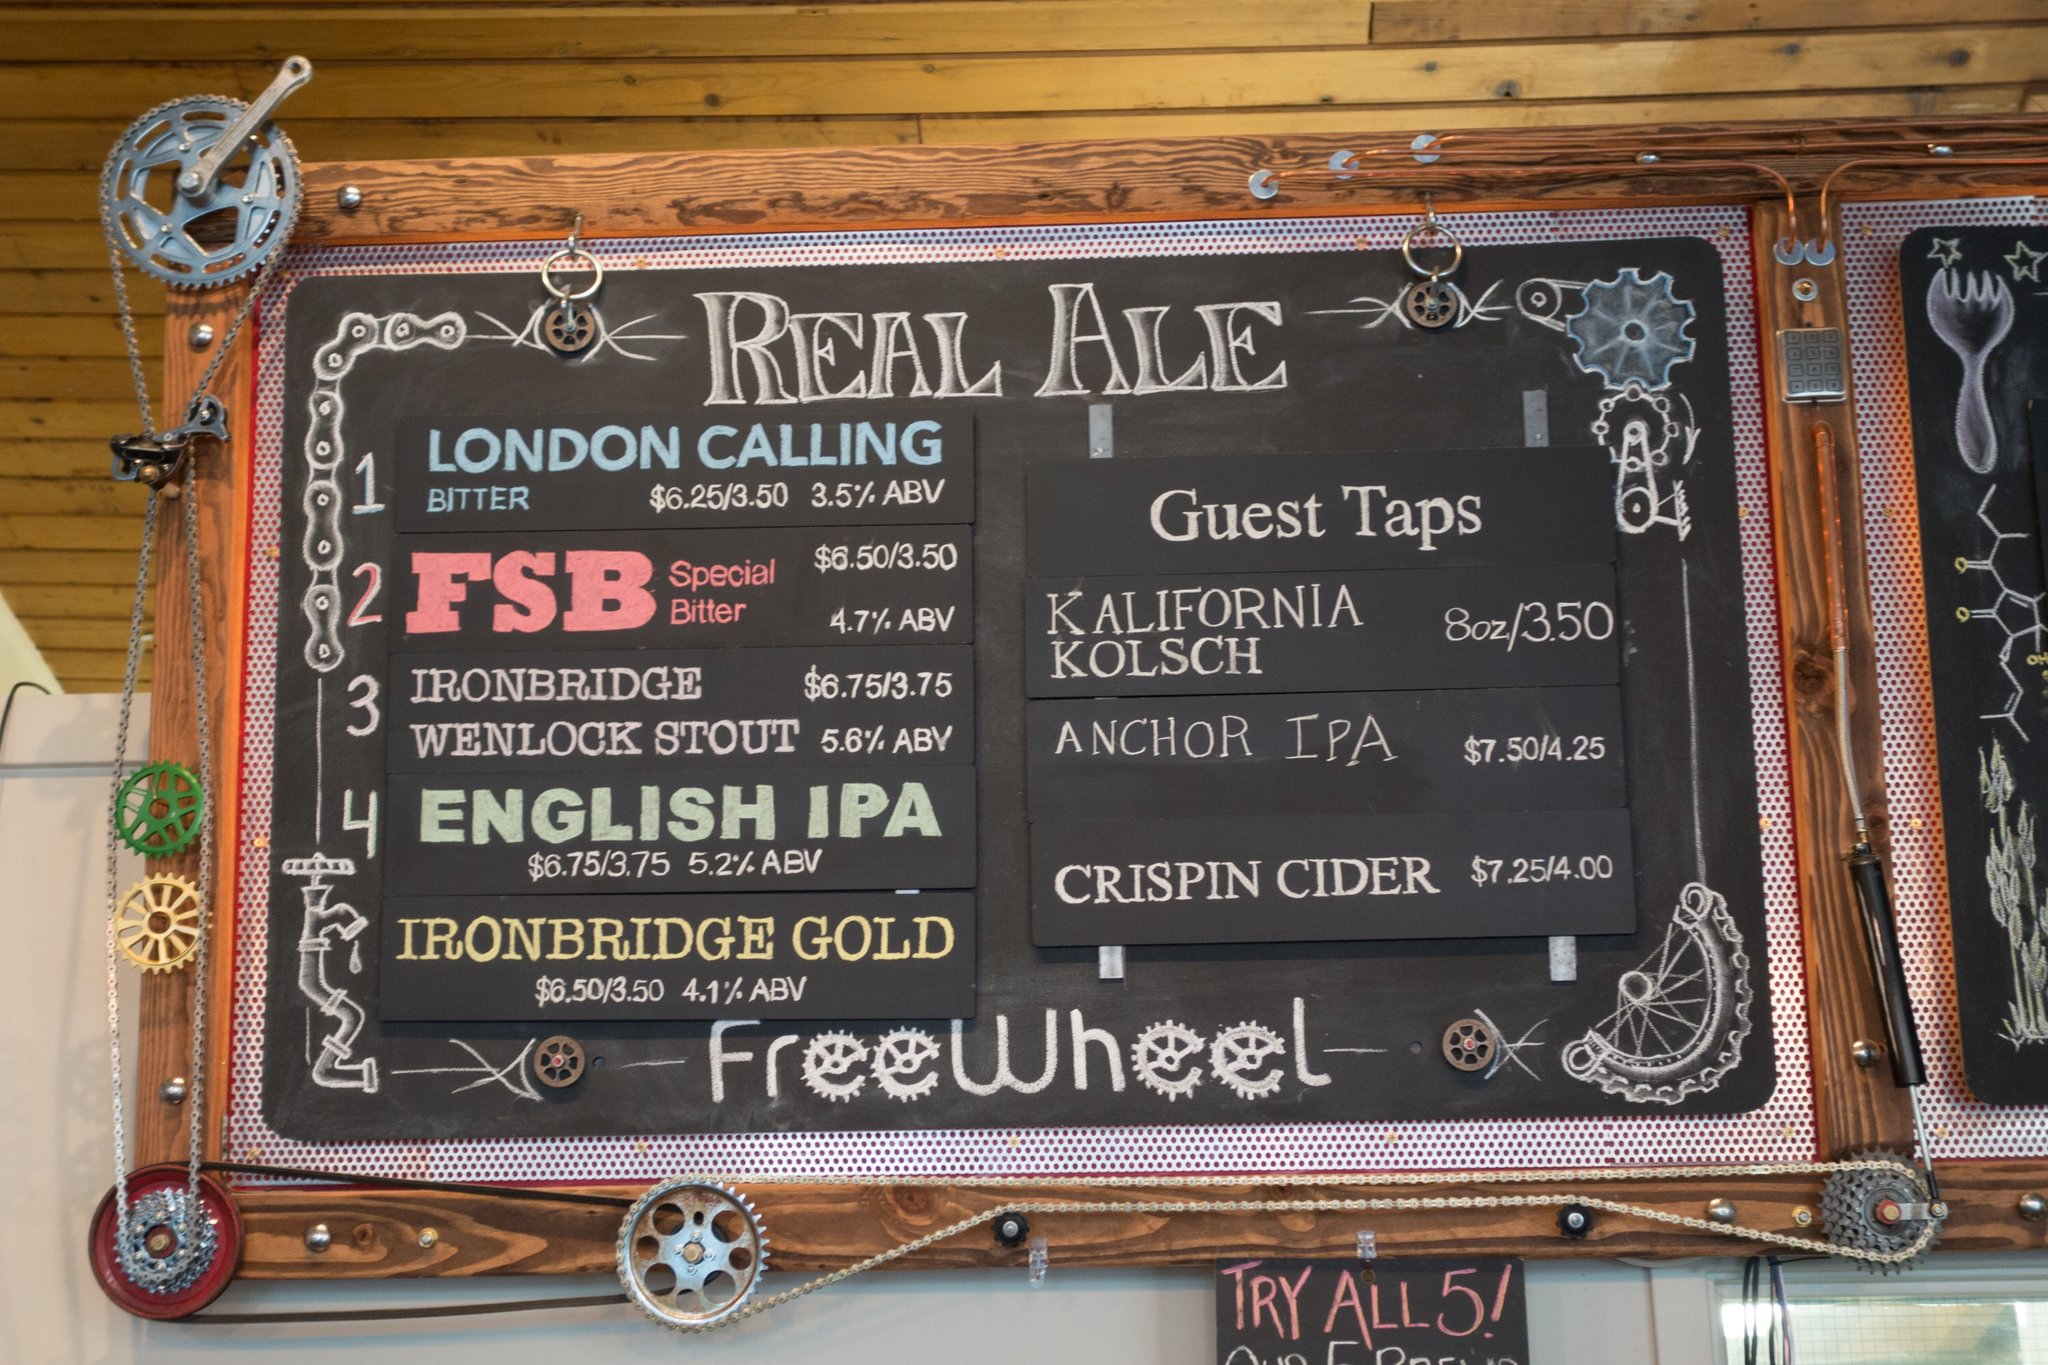 REAL ALE
1
LONDON CALLING
BITTER $6.25/3.50 3.5% ABV
2
FSB Special Bitter $6.50/3.50
4.7% ABV
3
IRONBRIDGE $6.75/3.75
WENLOCK STOUT 5.6% ABV
4
ENGLISH IPA
$6.75/3.75 5.2% ABV
IRONBRIDGE GOLD
$6.50/3.50 4.1% ABV
Guest Taps
KALIFORNIA
KOLSCH 8oz/3.50
ANCHOR IPA $7.50/4.25
CRISPIN CIDER $7.25/4.00
FreeWheel
OH
TRY ALL 5!